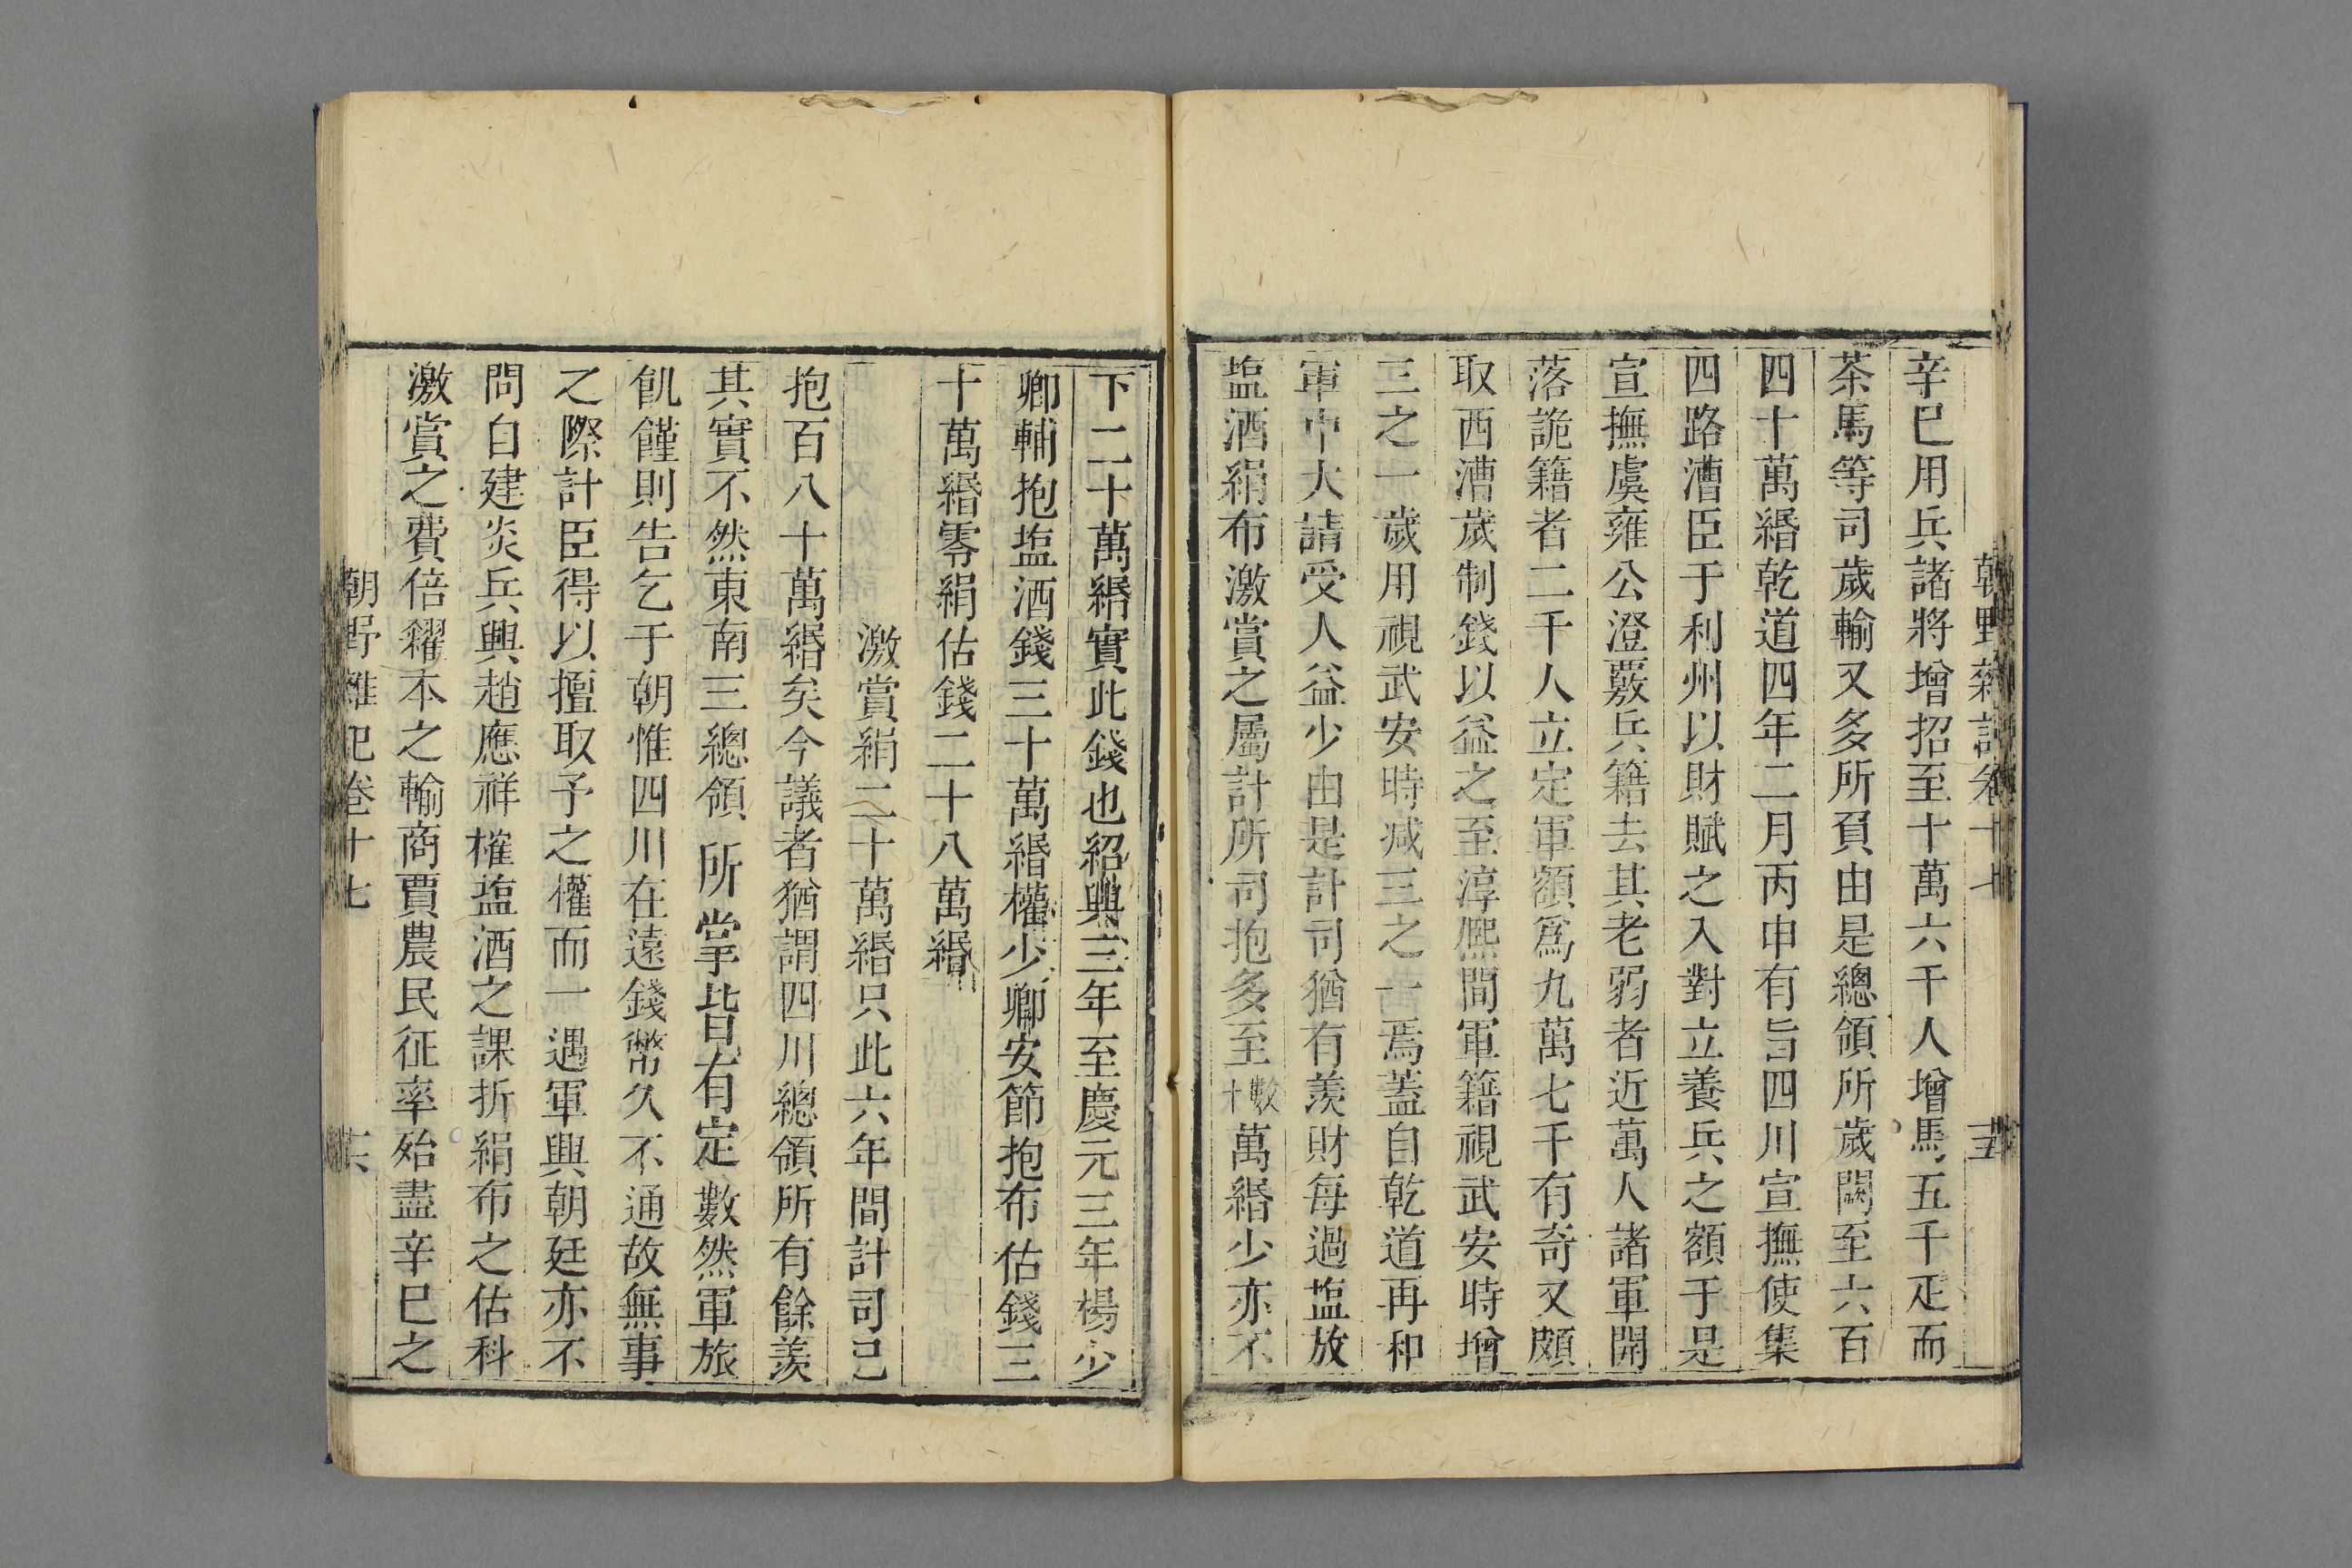 朝野雜記卷十七 十五
辛巳用兵諸將增招至十萬六千人增馬五千疋而
茶馬等司歲輸又多所負由是總領所歲闕至六百
四十萬緡乾道四年二月丙申有旨四川宣撫使集
四路漕臣于利州以財賦之入對立養兵之額于是
宣撫虞雍公澄覈兵籍去其老弱者近萬人諸軍開
落詭籍者二千人立定軍額爲九萬七千有奇又頗
取西漕歲制錢以益之至淳熈間軍籍視武安時增
三之一歲用視武安時减三之一焉蓋自乾道再和
軍中大請受人益少由是計司猶有羨財每過塩放
塩酒絹布激賞之屬計所司抱多至數十萬緡少亦不
下二十萬緡實此錢也紹興三年至慶元三年楊少
卿輔抱塩酒錢三十萬緡權少卿安節抱布估錢三
十萬緡零絹估錢二十八萬緡
激賞絹二十萬緡只此六年間計司已
抱百八十萬緡矣今議者猶謂四川總領所有餘羨
其實不然東南三總領所掌皆有定數然軍旅
飢饉則告乞于朝惟四川在遠錢幣久不通故無事
之際計臣得以擅取予之權而一遇軍興朝廷亦不
問自建炎兵興趙應祥榷塩酒之課折絹布之估科
激賞之費倍糴本之輸商賈農民征率殆盡辛巳之
朝野雜記卷十七 十六